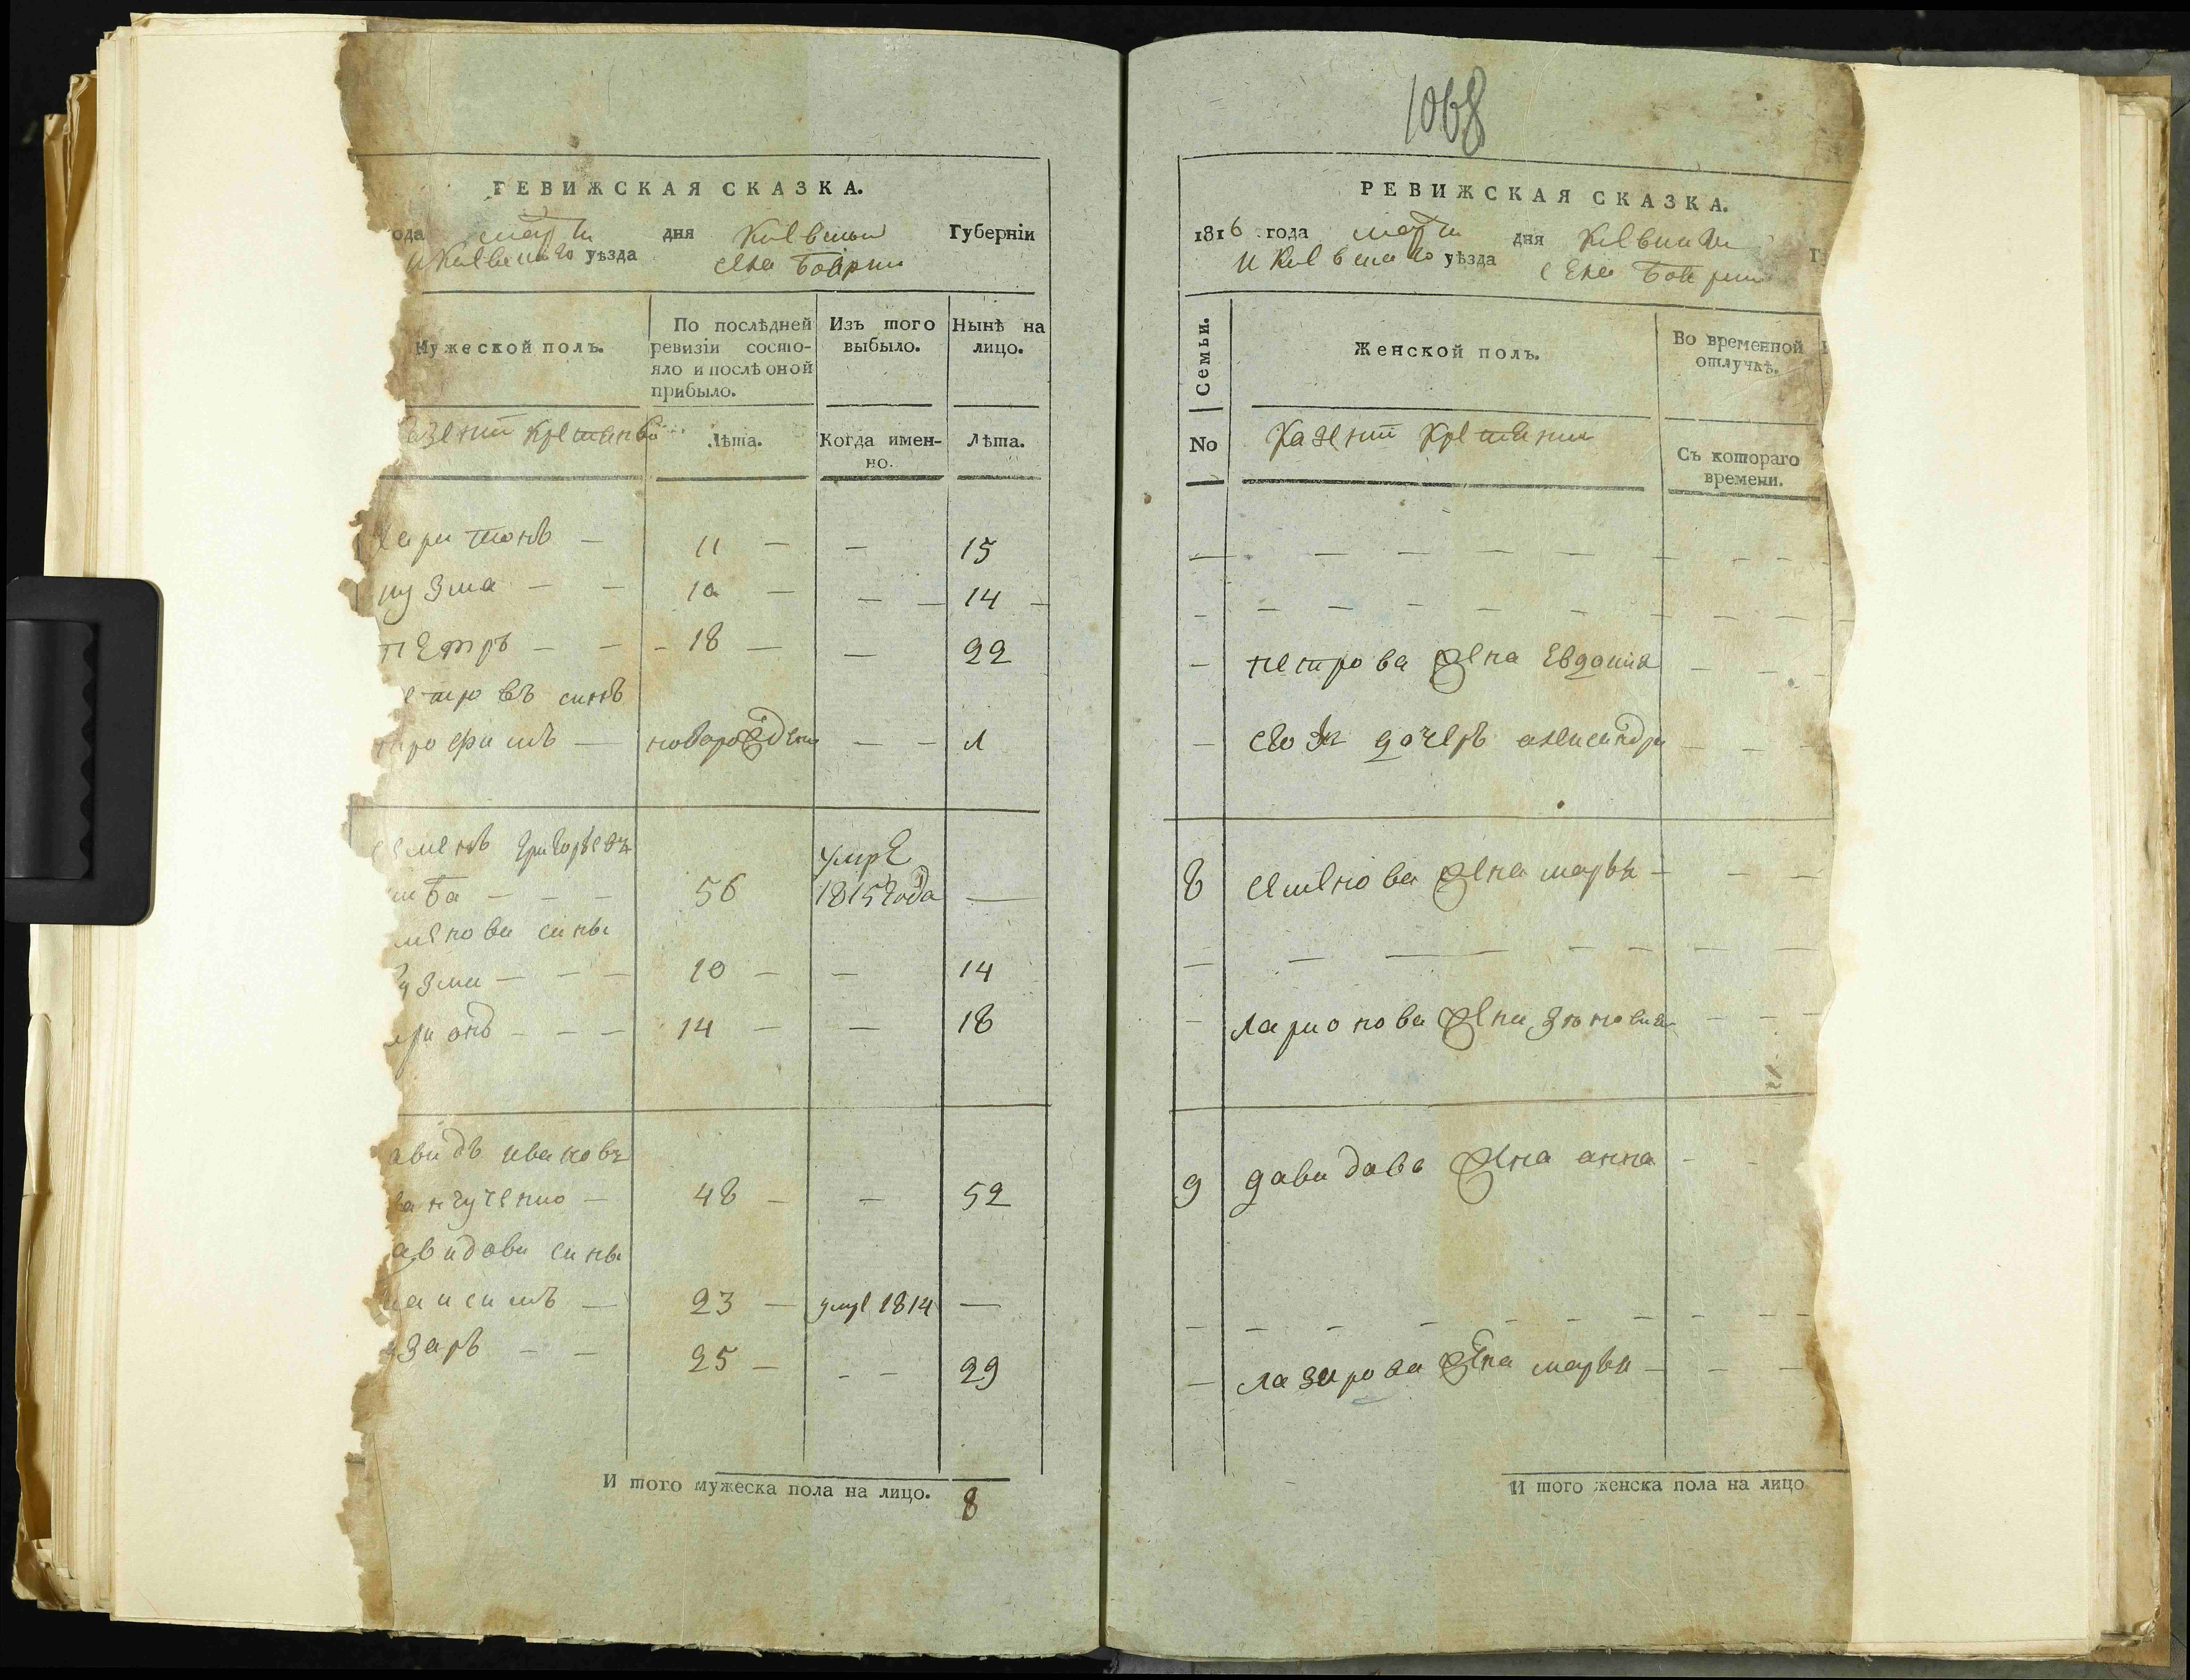 РЕВИЖСКАЯ СКАЗКА.
ода марта дня Киевской Губерніи
И Киевскаго уѣзда села Боярки
Мужеской полъ.
По послѣдней ревизіи состо-
яло и послѣ оной
прибыло.
Изъ того
выбыло.
Нынѣ на
лицо.
азенни крестяни
Лѣта.
Когда имен-
но.
Лѣта.
Харитонъ — 11 — — 15
кузма — — 10 — — — 14 —
петръ — — - 18 — — 22
етровъ синъ
трофимъ — новорожденъ — — 1
семенъ григорьевъ
56 умре 1815 года —
менови сины
узма — — — 10 — — 14
арионъ — — — 14 — — 18
авидъ ивановъ
48 — — 52
авидови сины
23 — умре 1814 —
азаръ — — 25 — — — 29
И того мужеска пола на лицо. 8
1068
РЕВИЖСКАЯ СКАЗКА.
1816 года марта дня Киевской Г
И Киевскаго уѣзда села Боярки
Семьи.
Женской полъ.
Во временной
отлучкѣ.
No
Казенни крестяни
Съ котораго
времени.
— петрова жена Евдокия — — —
— его ж дочерь александра — — —
8 семенова жена марья — — —
— ларионова жена зѣновия — — —
9 давидова жена анна — —
— лазарова жена марья — — —
И того женска пола на лицо